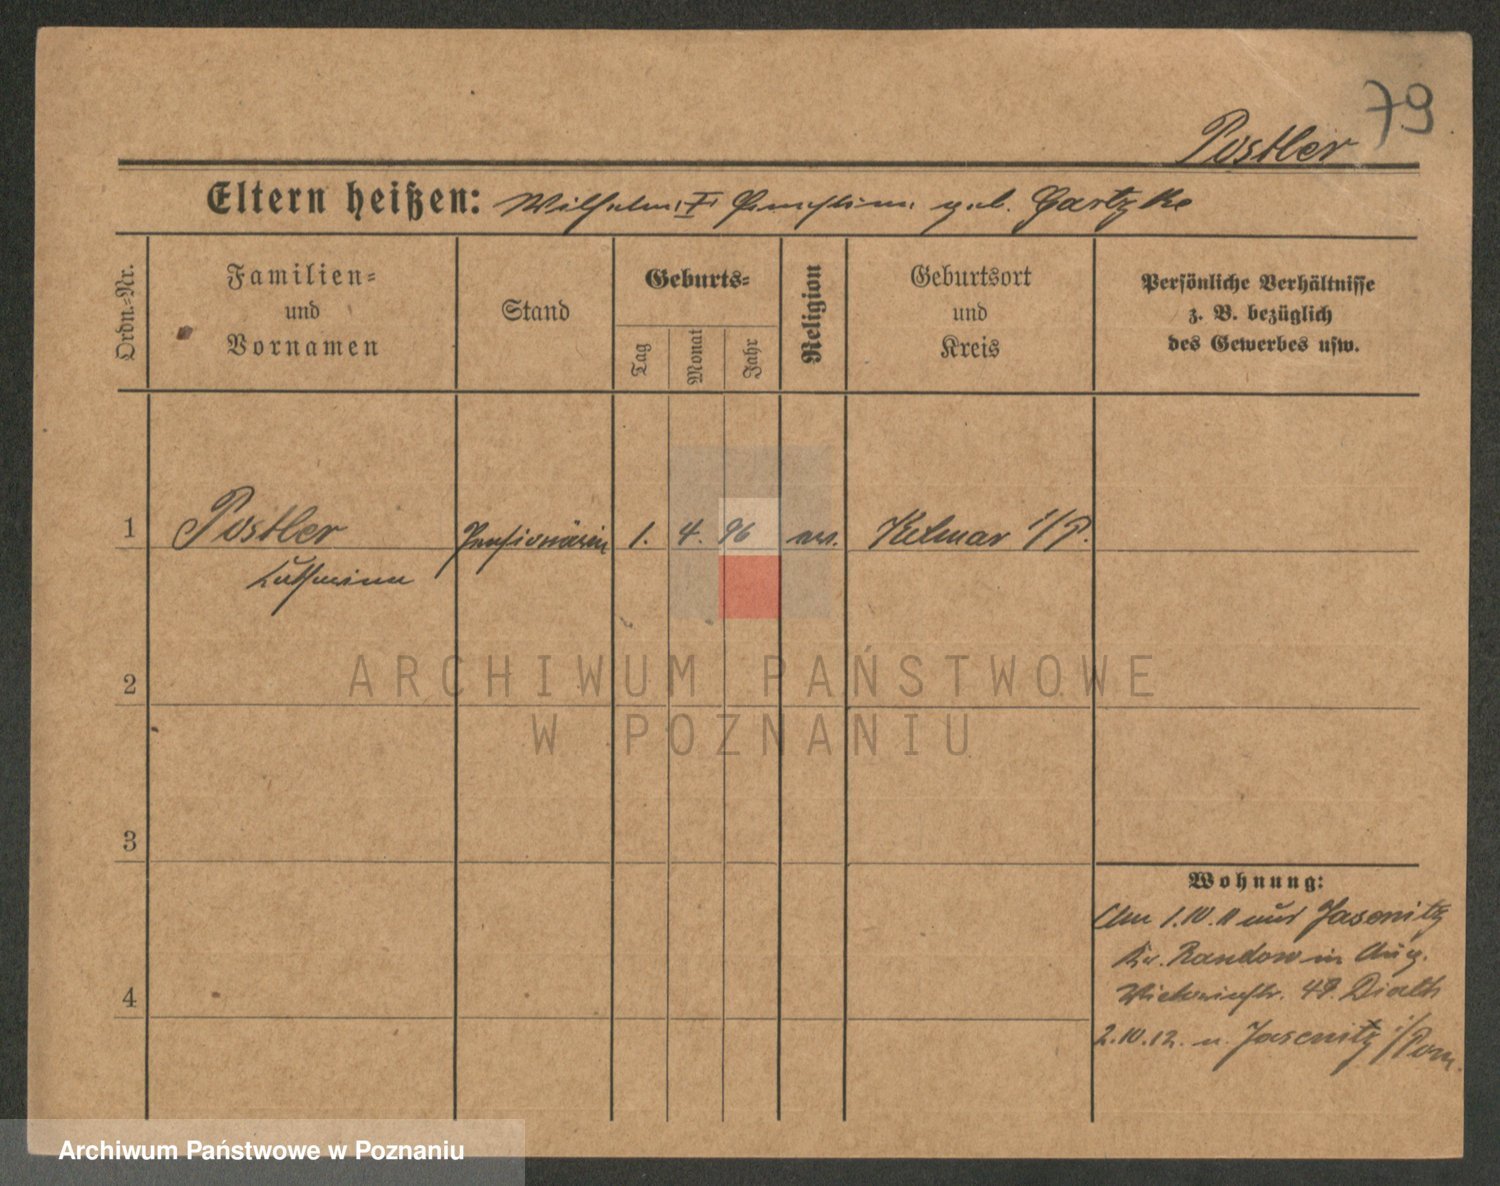 79
Postler
Eltern heißen: Wilhelm geb. Gartzke
Ordn.-Nr.
Familien-
und
Vornamen
Stand
Geburts-
Tag
Monat
Jahr
Religion
Geburtsort
und
Kreis
Persönliche Verhältnisse
z. B. bezüglich
des Gewerbes usw.
1 Postler Pensionärin 1. 4. 96 ev. Kolmar i/P.
2
3
4
Wohnung:
Am 1.10.11 aus Jasenitz
Kr. Randow in Aug.
Viktoriastr. 48. Diakh
2.10.12. n. Jasenitz i/Pom.
ARCHIWUM PAŃSTWOWE
W POZNANIU
Archiwum Państwowe w Poznaniu